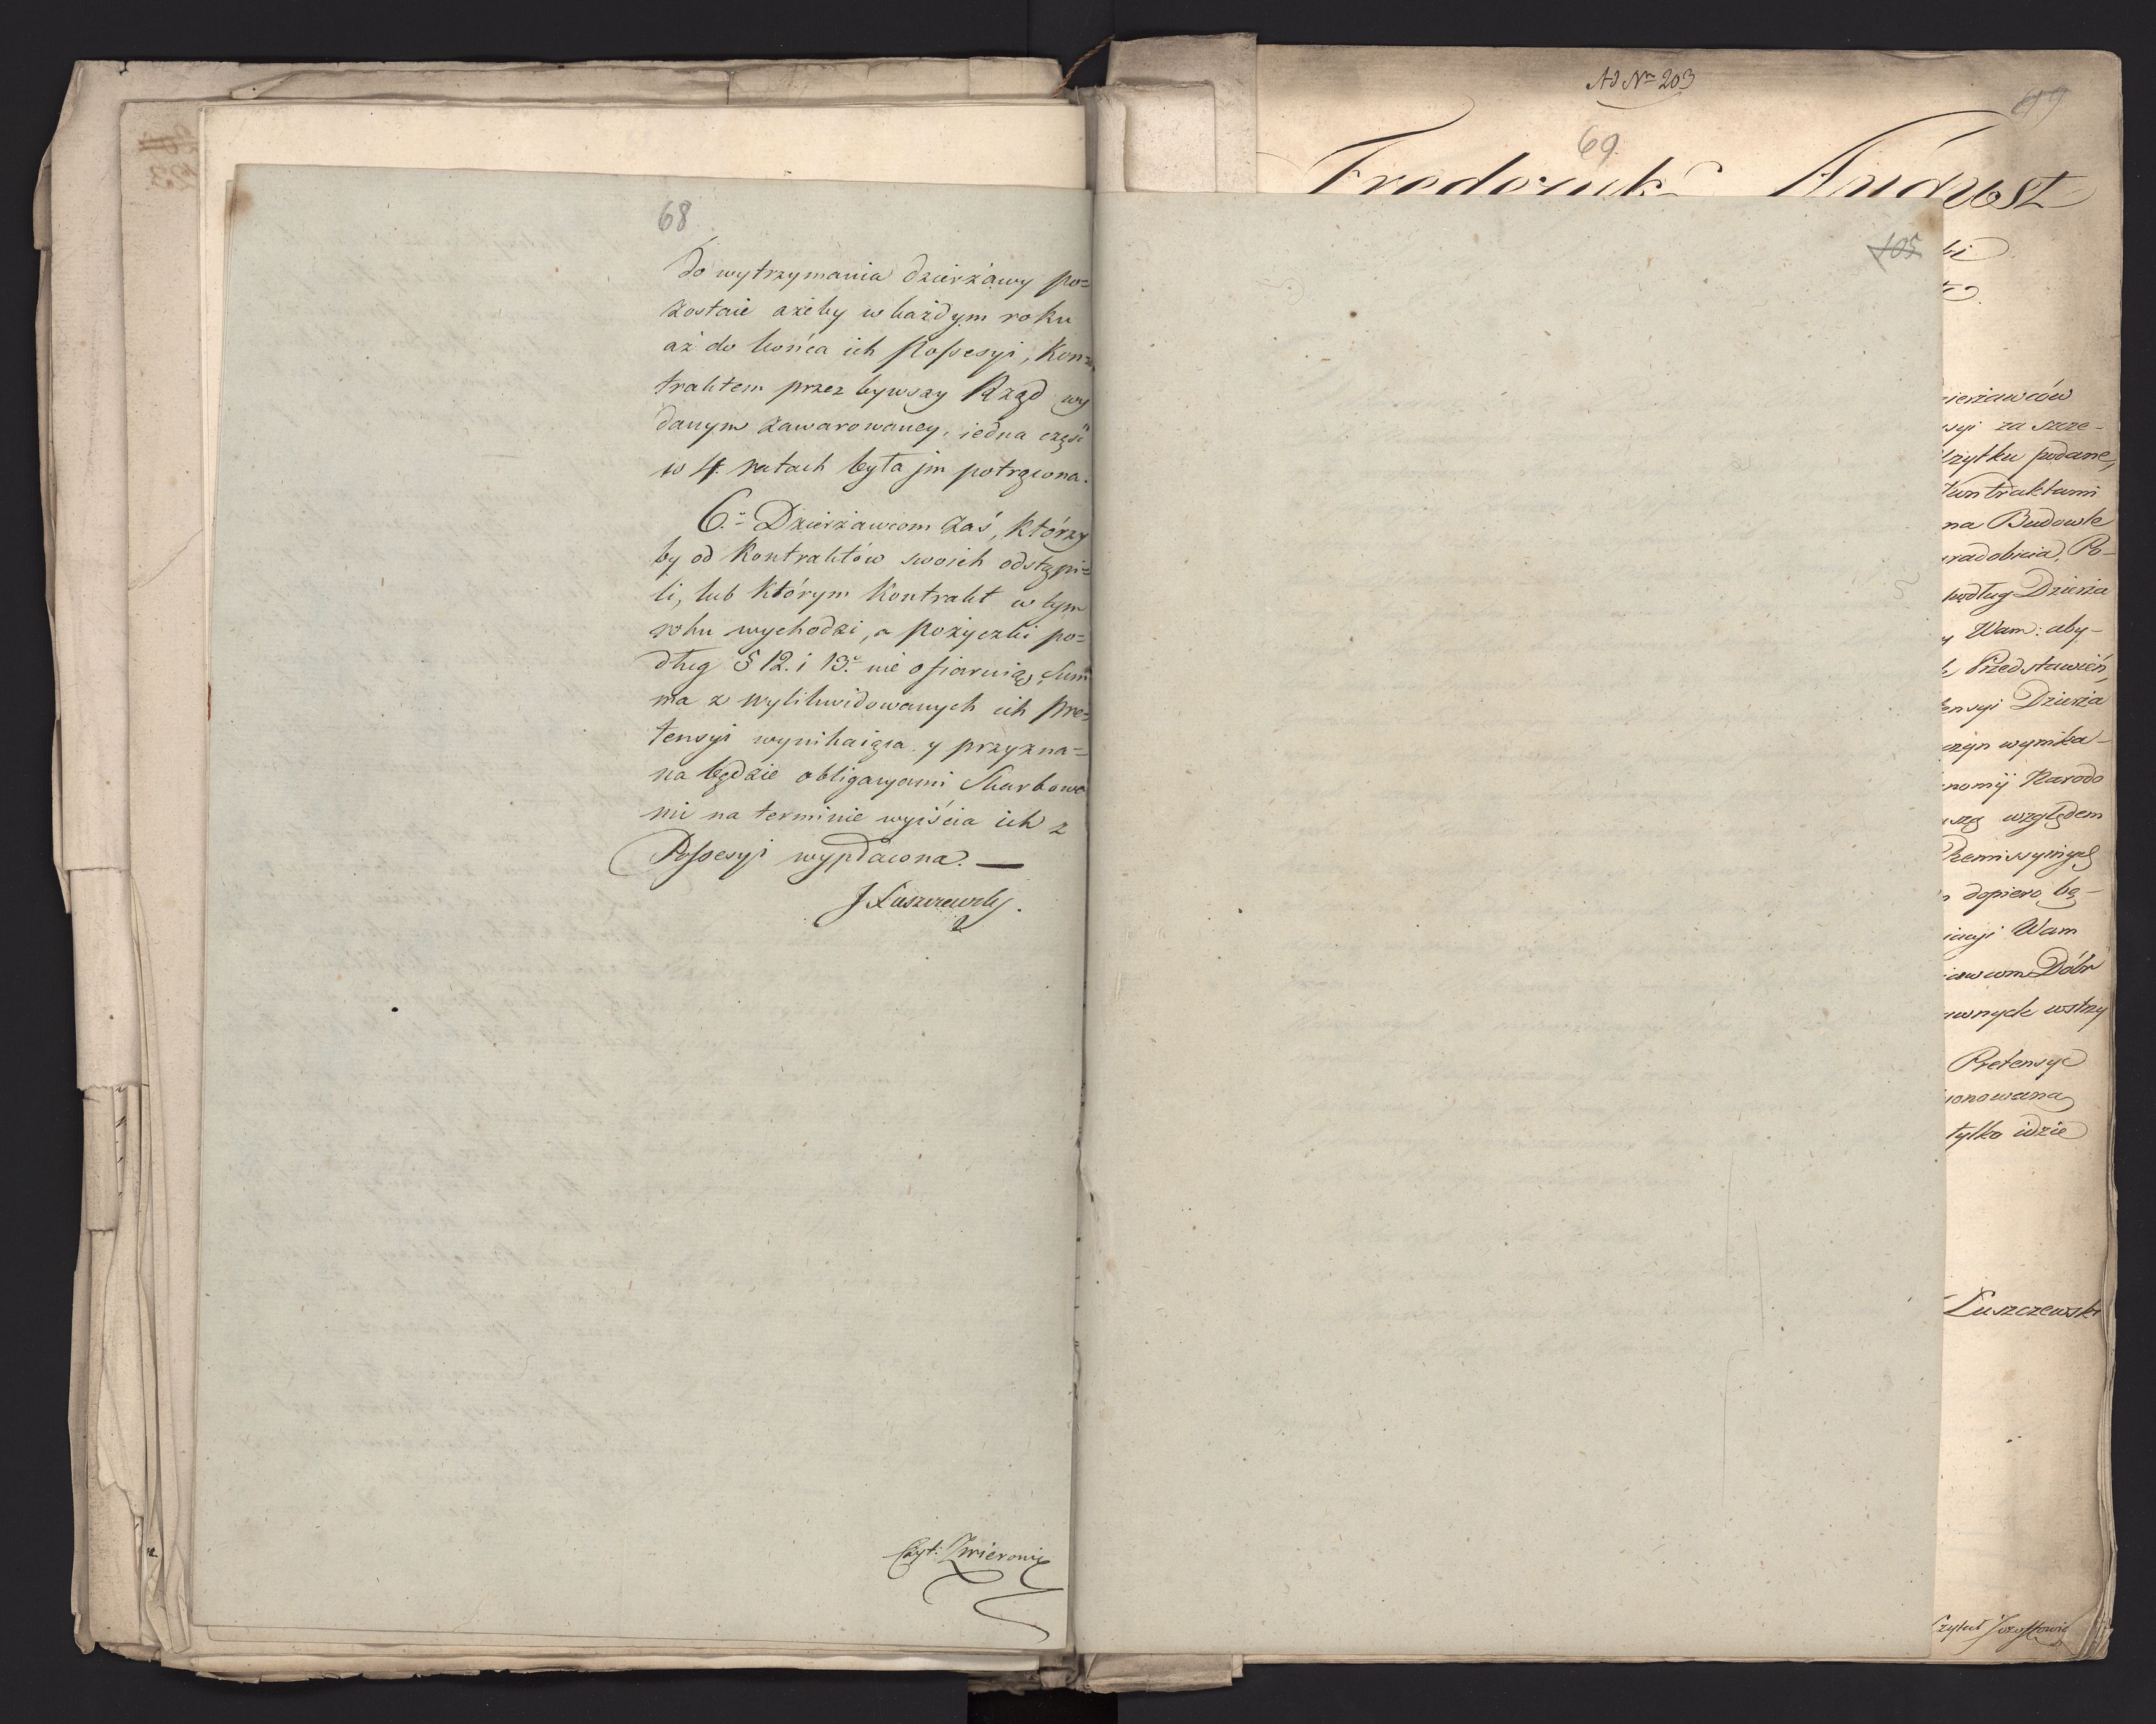 68
do wytrzymania dzierżawy po=
zostaie ażeby w każdym roku
aż do końca ich Possesyi, Kon=
traktem przez bywszy Rząd wy
danym zawarowaney, iedna część
w 4. ratach była jm potrącona.
6.° Dzierżawcom zaś, którzy
by od Kontraktów swoich odstąpi=
li, lub którym Kontrakt w tym
roku wychodzi, a pożyczki po=
dług § 12. i 13.° nie ofiaruią, Sum
ma z wylikwidowanych ich pre=
tensyi wynikaiąca y przyzna=
na będzie obligacyami Skarbowe
mi na terminie wyiścia ich z
Possesyi wypłacona. —
J Łuszczewski.
Czyt: Zwierowic
Ad Nro 203
69
69.
Frederick August
105
bi
ierżawców
syi za szcze-
użytku podane,
Kontraktami
na Budowle
gradobicia, Po-
podług Dzierża
y Wam: aby-
k Przedstawień,
tensyi Dzierża
czyn wynika-
nomij Narodo
uszą względem
Remissyinych
dopiero bę-
iacyi Wam
awcom Dóbr
awnych wstrzy
Pretensye
ionowana
tylko idzie
Łuszczewski
Czytał